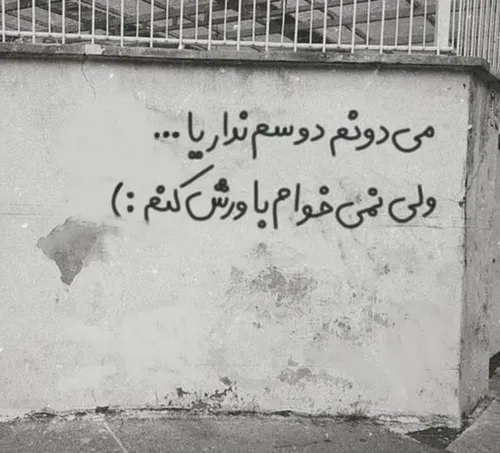 می دونم دوسم نداریا ...
ولی نمی خوام باورش کنم :)